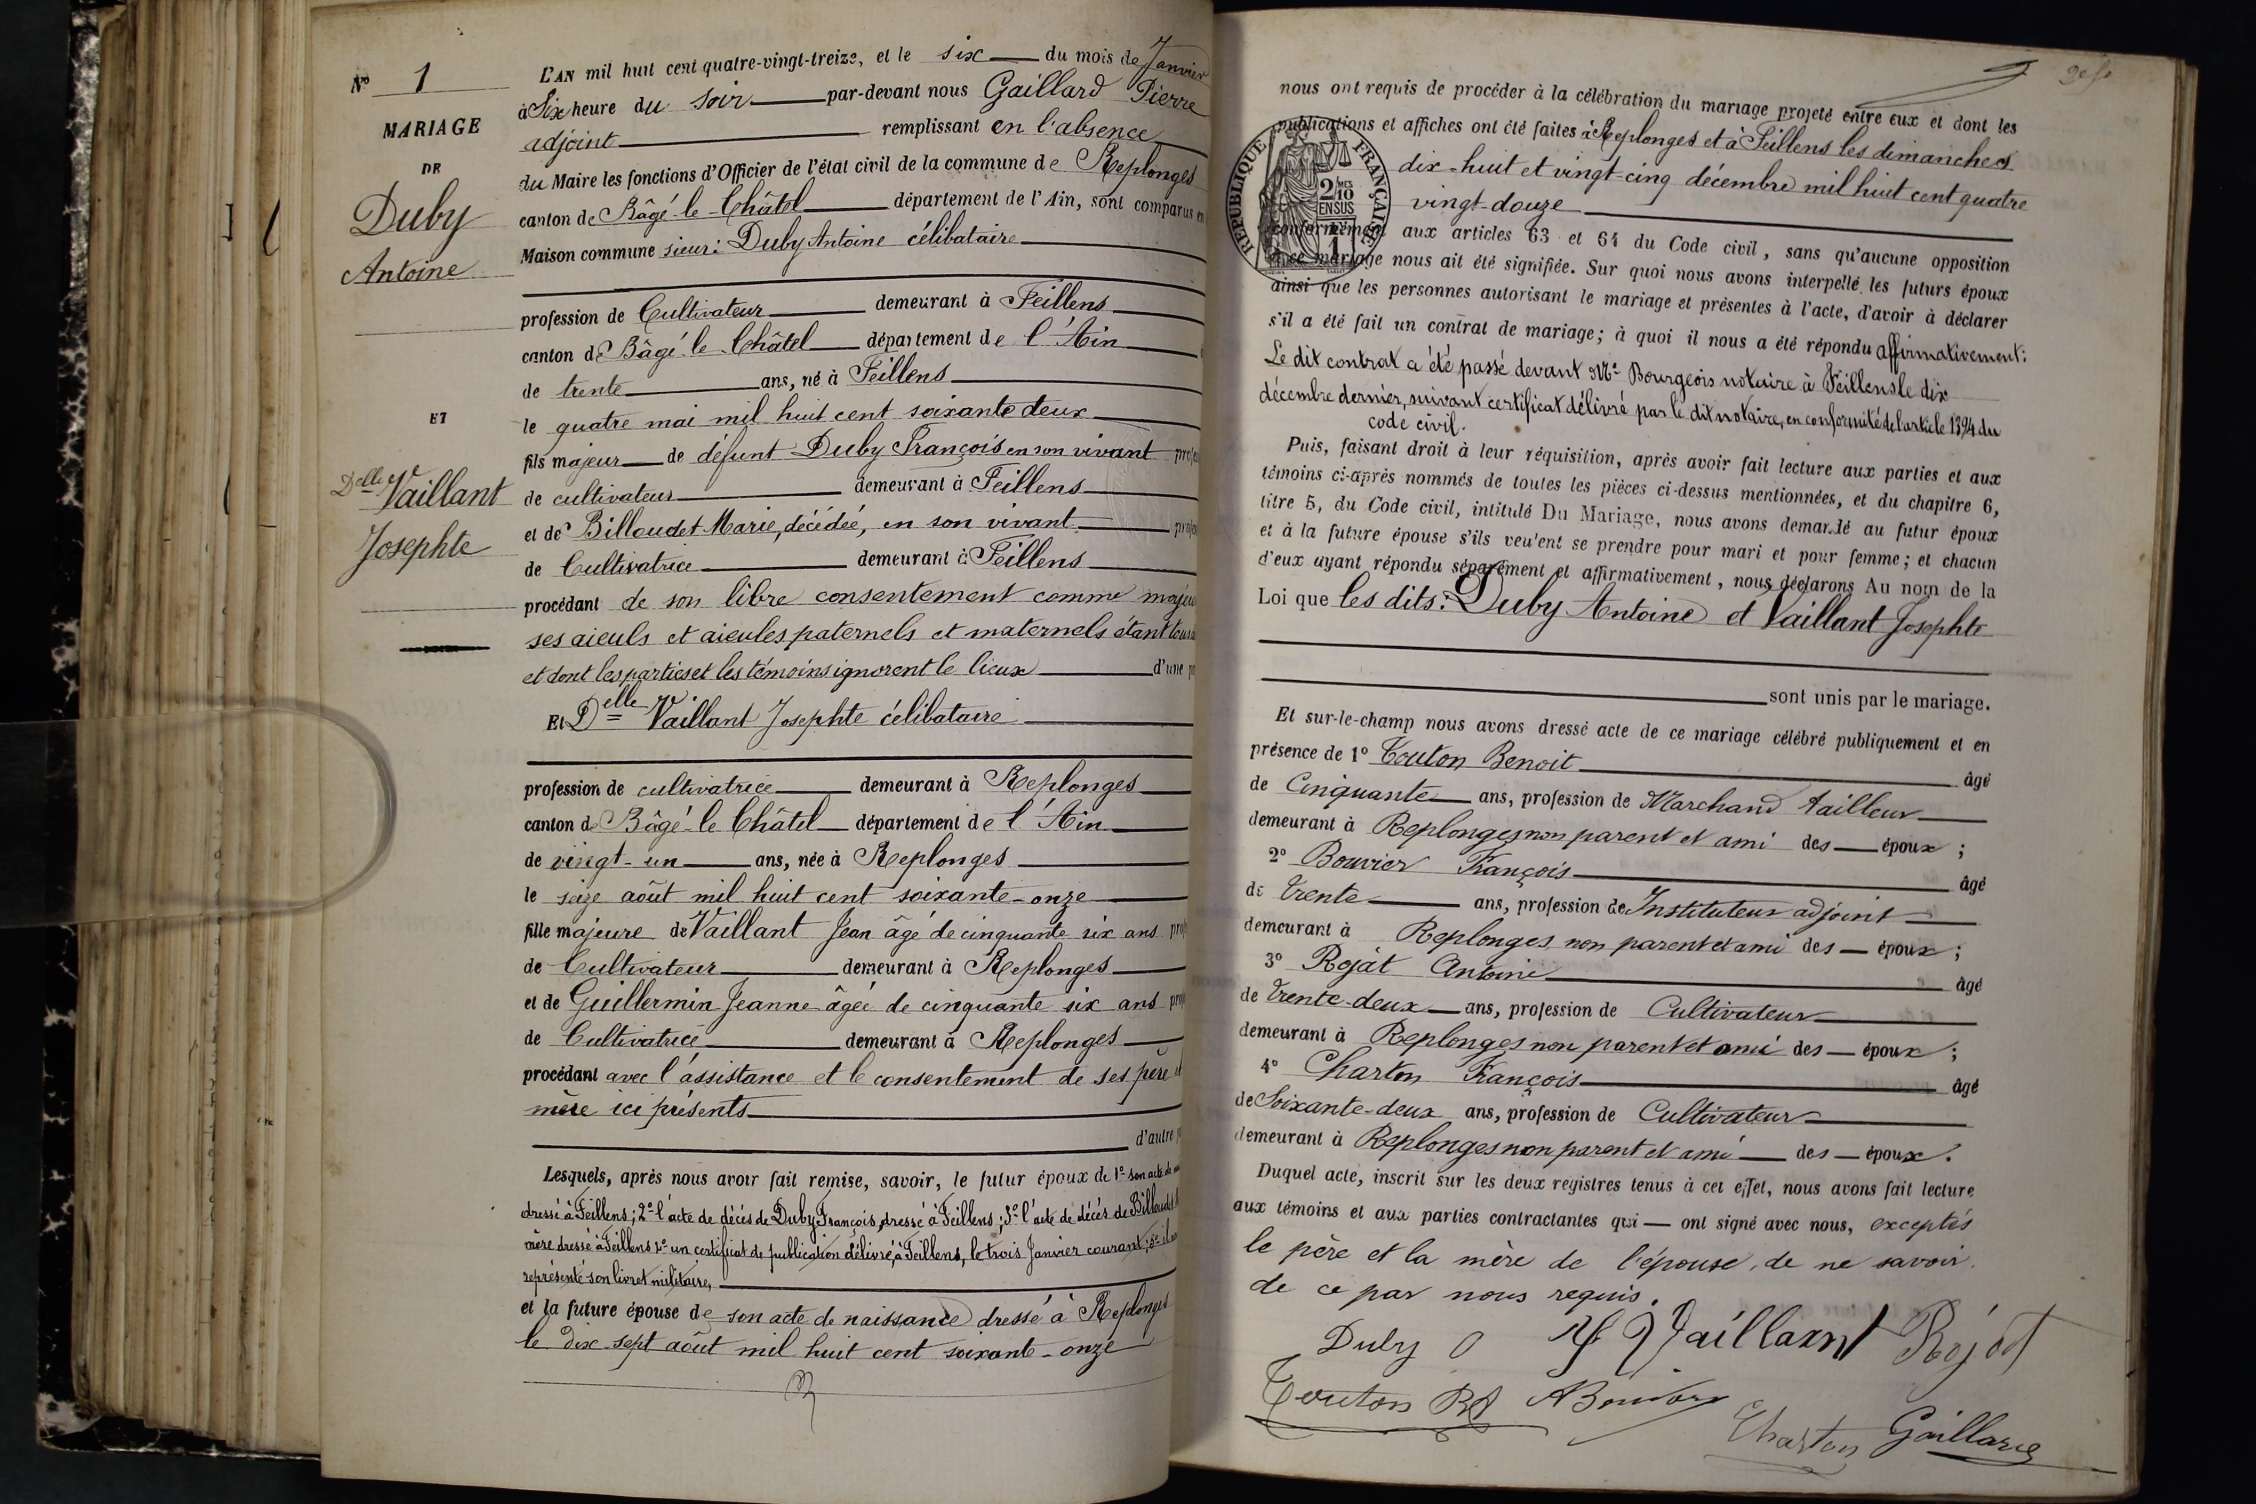 N° 1
MARIAGE
DE
Duby
Antoine
ET
Delle Vaillant
Josephte
L'AN mil huit cent quatre-vingt-treize, et le six du mois de Janvier
à Six heure du soir par-devant nous Gaillard Pierre
adjoint remplissant en l'absence
du Maire les fonctions d'Officier de l'état civil de la commune de Replonges
canton de Bâgé-le-Châtel département de l'Ain, sont comparus en
Maison commune sieur: Duby Antoine célibataire
profession de Cultivateur demeurant à Feillens
canton de Bâgé-le-Châtel département de l'Ain
de trente ans, né à Feillens
le quatre mai mil huit cent soixante deux
fils majeur de défunt Duby François en son vivant
de cultivateur demeurant à Feillens
et de Billoudet Marie, décédée, en son vivant
de Cultivatrice demeurant à Feillens
procédant de son libre consentement comme majeur
ses aieuls et aieules paternels et maternels étant tous
et dont les parties et les témoins ignorent le lieux d'une
Et Delle Vaillant Josephte célibataire
profession de cultivatrice demeurant à Replonges
canton de Bâgé-le-Châtel département de l'Ain
de vingt-un ans, née à Replonges
le seize août mil huit cent soixante-onze
fille majeure de Vaillant Jean âgé de cinquante six ans
de Cultivateur demeurant à Replonges
et de Guillermin Jeanne âgée de cinquante six ans
de Cultivatrice demeurant à Replonges
procédant avec l'assistance et le consentement de ses père et
mère ici présents
d'autre
Lesquels, après nous avoir fait remise, savoir, le futur époux de 1° son acte de
dressé à Feillens; 2° l'acte de décès de Duby François, dressé à Feillens; 3° l'acte de décès de Billoudet
mère dressé à Feillens 4° un certificat de publication délivré, à Feillens, le trois Janvier courant; 5° il
représenté son livret militaire,
et la future épouse de son acte de naissance dressé à Replonges
le dix sept août mil huit cent soixante-onze
nous ont requis de procéder à la célébration du mariage projeté entre eux et dont les
publications et affiches ont été faites à Replonges et à Feillens les dimanches
dix-huit et vingt-cinq décembre mil huit cent quatre
vingt-douze
RÉPUBLIQUE FRANÇAISE
2/10 EN SUS
conformément aux articles 63 et 64 du Code civil, sans qu'aucune opposition
à ce mariage nous ait été signifiée. Sur quoi nous avons interpellé les futurs époux
ainsi que les personnes autorisant le mariage et présentes à l'acte, d'avoir à déclarer
s'il a été fait un contrat de mariage; à quoi il nous a été répondu affirmativement:
Le dit contrat a été passé devant Me Bourgeois notaire à Feillens le dix
décembre dernier, suivant certificat délivré par le dit notaire, en conformité de l'article 1394 du
code civil.
Puis, faisant droit à leur réquisition, après avoir fait lecture aux parties et aux
témoins ci-après nommés de toutes les pièces ci-dessus mentionnées, et du chapitre 6,
titre 5, du Code civil, intitulé Du Mariage, nous avons demandé au futur époux
et à la future épouse s'ils veulent se prendre pour mari et pour femme; et chacun
d'eux ayant répondu séparément et affirmativement, nous déclarons Au nom de la
Loi que les dits: Duby Antoine et Vaillant Josephte
sont unis par le mariage.
Et sur-le-champ nous avons dressé acte de ce mariage célébré publiquement et en
présence de 1° Touton Benoit âgé
de Cinquante ans, profession de Marchand tailleur
demeurant à Replonges non parent et ami des époux;
2° Bouvier François âgé
de trente ans, profession de Instituteur adjoint
demeurant à Replonges non parent et ami des époux;
3° Rojat Antoine âgé
de trente-deux ans, profession de Cultivateur
demeurant à Replonges non parent et ami des époux;
4° Charton François âgé
de Soixante-deux ans, profession de Cultivateur
demeurant à Replonges non parent et ami des époux.
Duquel acte, inscrit sur les deux registres tenus à cet effet, nous avons fait lecture
aux témoins et aux parties contractantes qui ont signé avec nous, exceptés
le père et la mère de l'épouse, de ne savoir,
de ce par nous requis.
Duby Vaillant Rojat
Touton Bouvier
Charton Gaillard